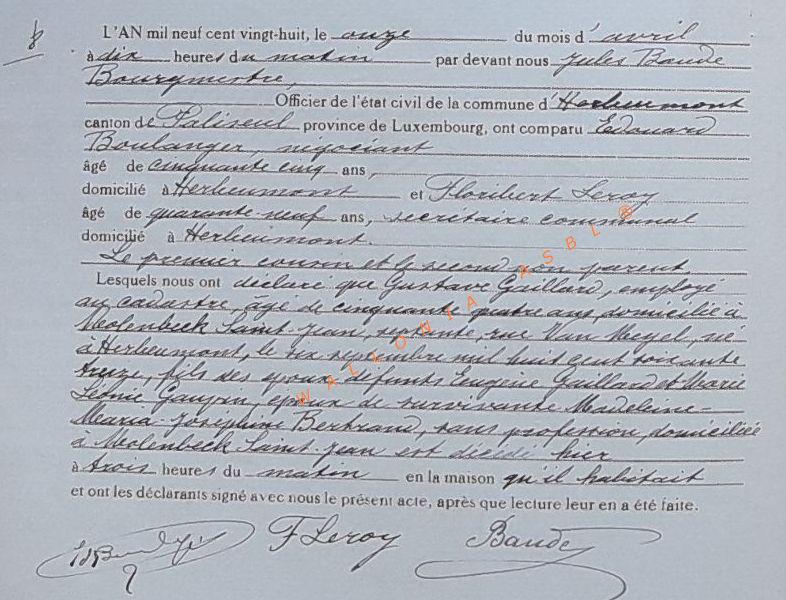 8
L'AN mil neuf cent vingt-huit, le onze du mois d'avril
à dix heures du matin par devant nous Jules Baude
Bourgmestre,
Officier de l'état civil de la commune d'Herbeumont
canton de Paliseul province de Luxembourg, ont comparu Edouard
Boulanger, négociant
âgé de cinquante cinq ans,
domicilié à Herbeumont et Floribert Leroy
âgé de quarante-neuf ans, secrétaire communal
domicilié à Herbeumont.
Le premier cousin et le second non parent
Lesquels nous ont déclaré que Gustave Gaillard, employé
au cadastre, âgé de cinquante quatre ans, domicilié à
Molenbeek Saint-Jean, septante, rue Van Meyel, né
à Herbeumont, le six septembre mil huit cent soixante
treize, fils des époux défunts Eugène Gaillard et Marie
Léonie Gaupin, époux de survivante Madeleine-
Maria-Joséphine Bertrand, sans profession, domiciliée
à Molenbeek Saint-Jean est décédé hier
à trois heures du matin en la maison qu'il habitait
et ont les déclarants signé avec nous le présent acte, après que lecture leur en a été faite.
F Leroy Baude
WALLONIA ASBL ®